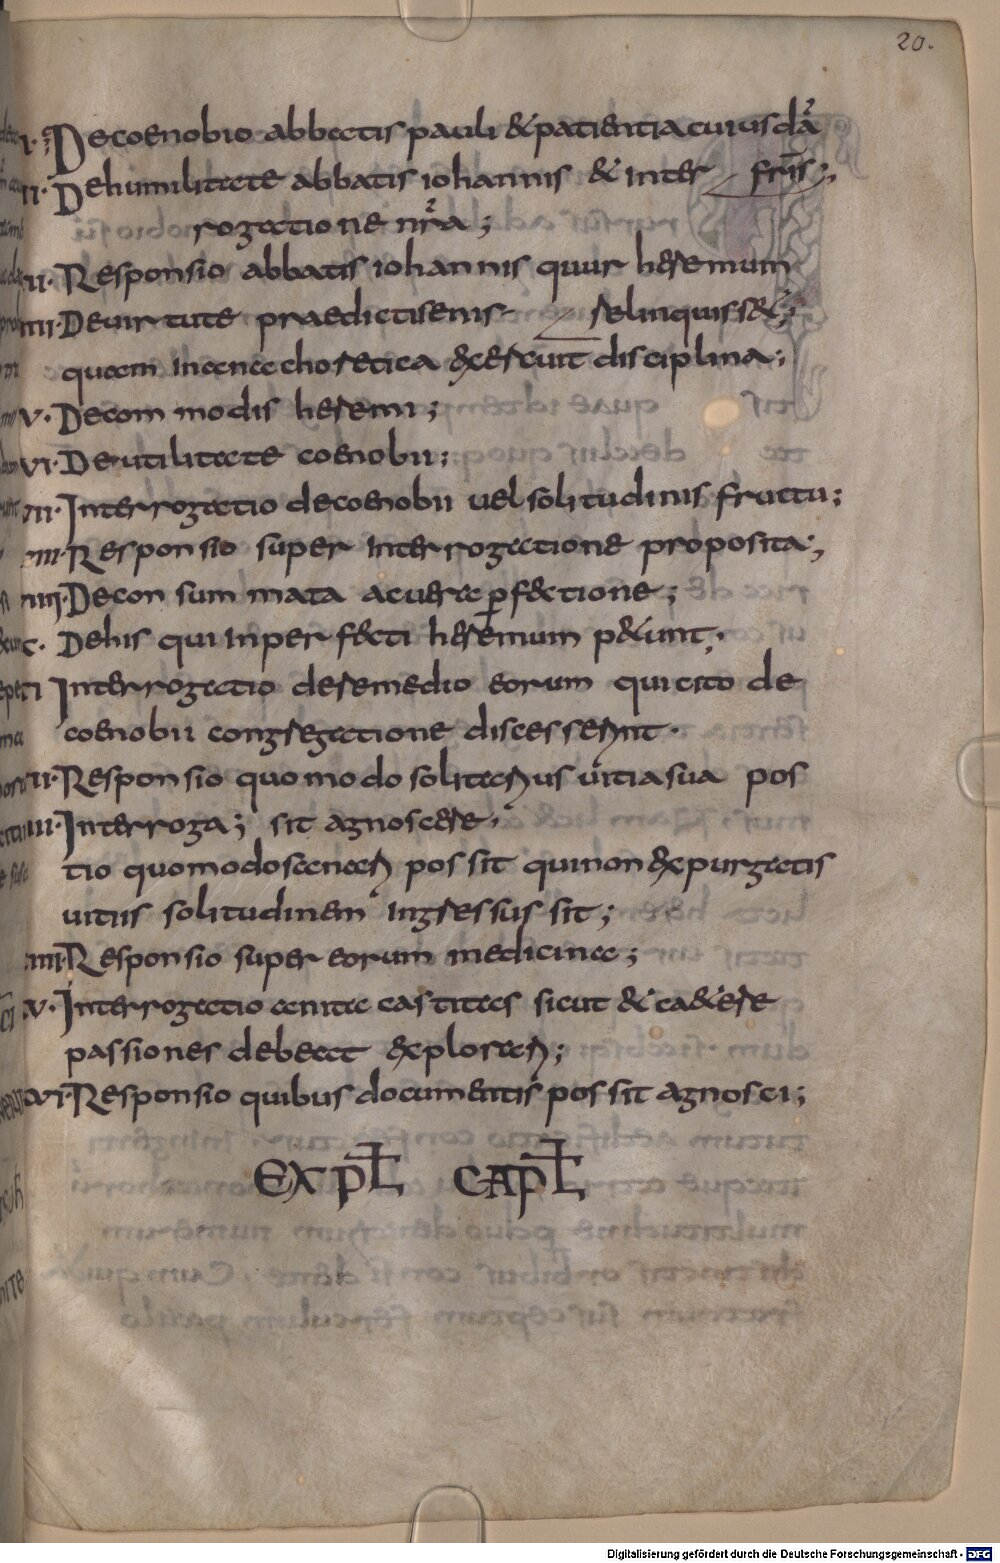 20.
I· De coenobio abbatis pauli & patientia cuiusdā
II· De humilitate abbatis iohannis & inter fris;
rogatione nra;
II· Responsio abbatis iohannis quur heremum
IIII· De uirtute praedicti senis relinquiss&;
quam in anachoretica excercuit disciplina;
V· De commodis heremi;
VI· De utilitate coenobii;
VII· Interrogatio de coenobii uel solitudinis fructu;
VIII· Responsio super interrogatione proposita;
VIIII· De consummata ac uera ꝑf&ctione;
X· De his qui inperf&cti heremum p&unt;
XI Interrogatio de remedio eorum qui cito de
coenobii congregatione discesserunt·
XII· Responsio quomodo solitarius uitia sua pos
XIII· Interroga; sit agnoscere;
tio quomodo sanari possit qui non expurgatis
uitiis solitudinem ingressus sit;
XIIII Responsio super eorum medicina;
XV· Interrogatio an ita castitas sicut & ca&ere
passiones debeat explorari;
XVI· Responsio quibus documentis possit agnosci;
EXPL CAPL
Digitalisierung gefördert durch die Deutsche Forschungsgemeinschaft - DFG